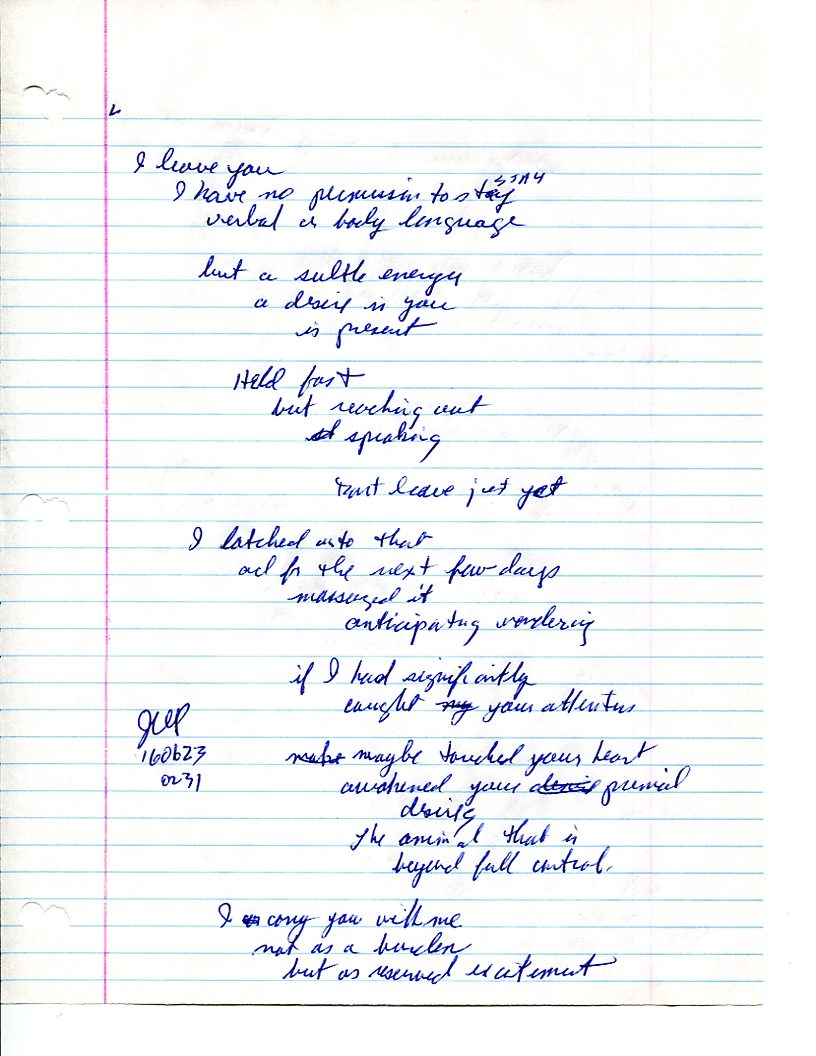 I leave you
I have no permission to stay STAY
verbal or body language
but a subtle energy
a desire in you
is present
Held fast
but reaching out
speaking
don't leave just yet
I latched onto that
and for the next few days
massaged it
anticipating wondering
if I had significantly
caught my your attention
JWP
160623
0231
make maybe touched your heart
awakened your desire primial
desires
The animal that is
beyond full control.
I carry you with me
not as a burden
but as reserved excitement